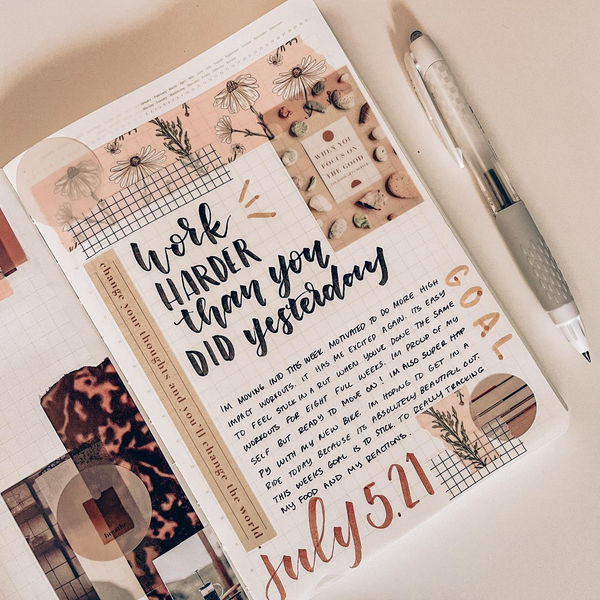 WHEN YOU
FOCUS ON
THE GOOD
Work
HARDER
than you
DID yesterday
change your thoughts and you'll change the world
GOAL
IM MOVING INTO THIS WEEK MOTIVATED TO DO MORE HIGH
IMPACT WORKOUTS. IT HAS ME EXCITED AGAIN. ITS EASY
TO FEEL STUCK IN A RUT WHEN YOUVE DONE THE SAME
WORKOUTS FOR EIGHT FULL WEEKS. IM PROUD OF MY
SELF BUT READY TO MOVE ON! IM ALSO SUPER HAP
PY WITH MY NEW BIKE. IM HOPING TO GET IN A
RIDE TODAY BECAUSE ITS ABSOLUTELY BEAUTIFUL OUT.
THIS WEEKS GOAL IS TO STICK TO REALLY TRACKING
MY FOOD AND MY REACTIONS.
july 5.21
breathe